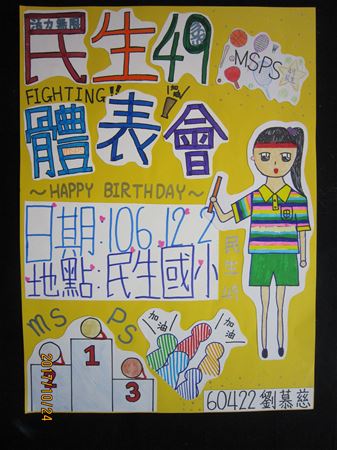 活力無限
民生49
MSPS
FIGHTING!!
加油
體表會
~HAPPY BIRTHDAY~
日期:106.12.2
地點:民生國小
民生49
MS PS
1
3
加油!
加油!
60422劉慕慈
2017/10/24